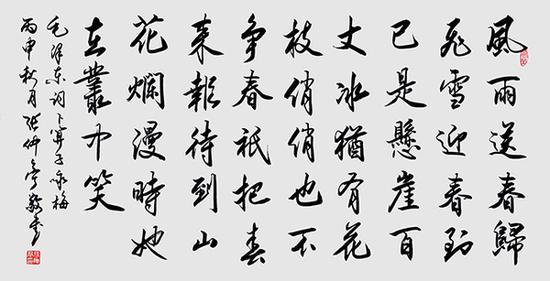 風雨送春歸
飛雪迎春到
已是懸崖百
丈冰猶有花
枝俏俏也不
争春祇把春
来報待到山
花爛漫時她
在叢中笑
毛澤东词卜算子咏梅
丙申秋月张仲亭敬書